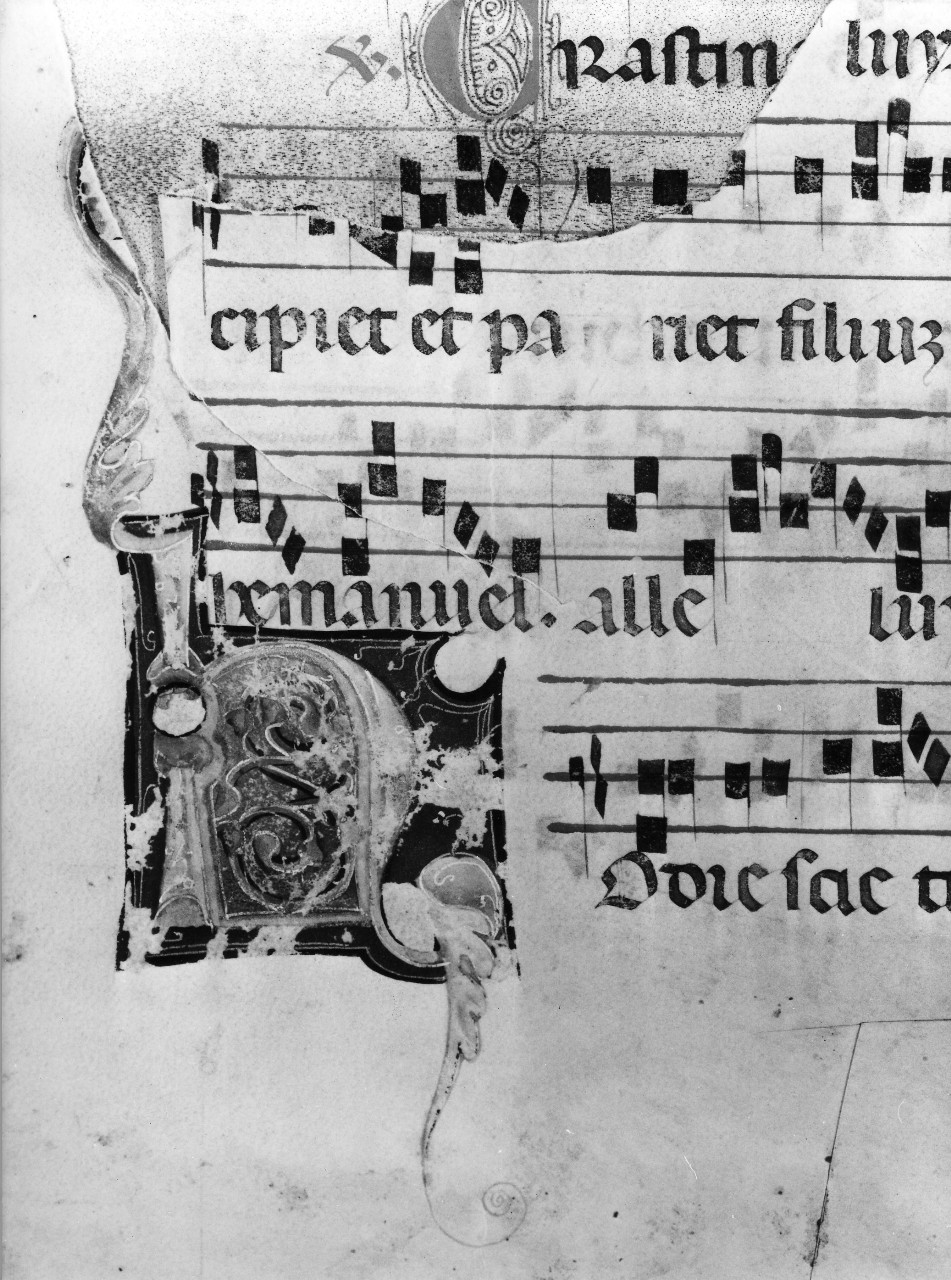 ℣. Crastin luy
cipiet et pa riet filiuȝ
hemanuel. alle lu
Hodie scie ti